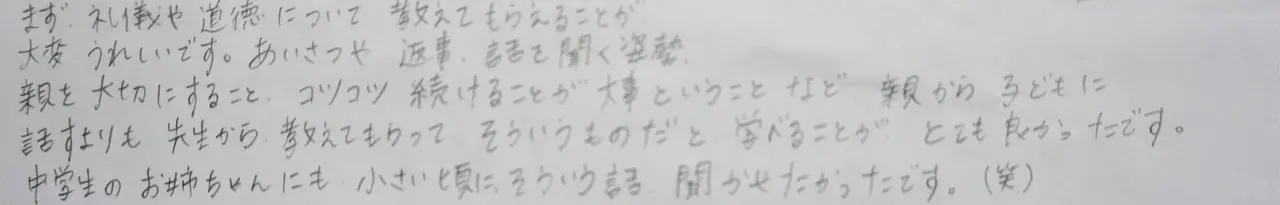 まず、礼儀や道徳について教えてもらえることが
大変うれしいです。あいさつや返事、話を聞く姿勢、
親を大切にすること、コツコツ続けることが大事ということなど親から子どもに
話すよりも先生から教えてもらってそういうものだと学べることがとても良かったです。
中学生のお姉ちゃんにも小さい頃に、そういう話、聞かせたかったです。(笑)